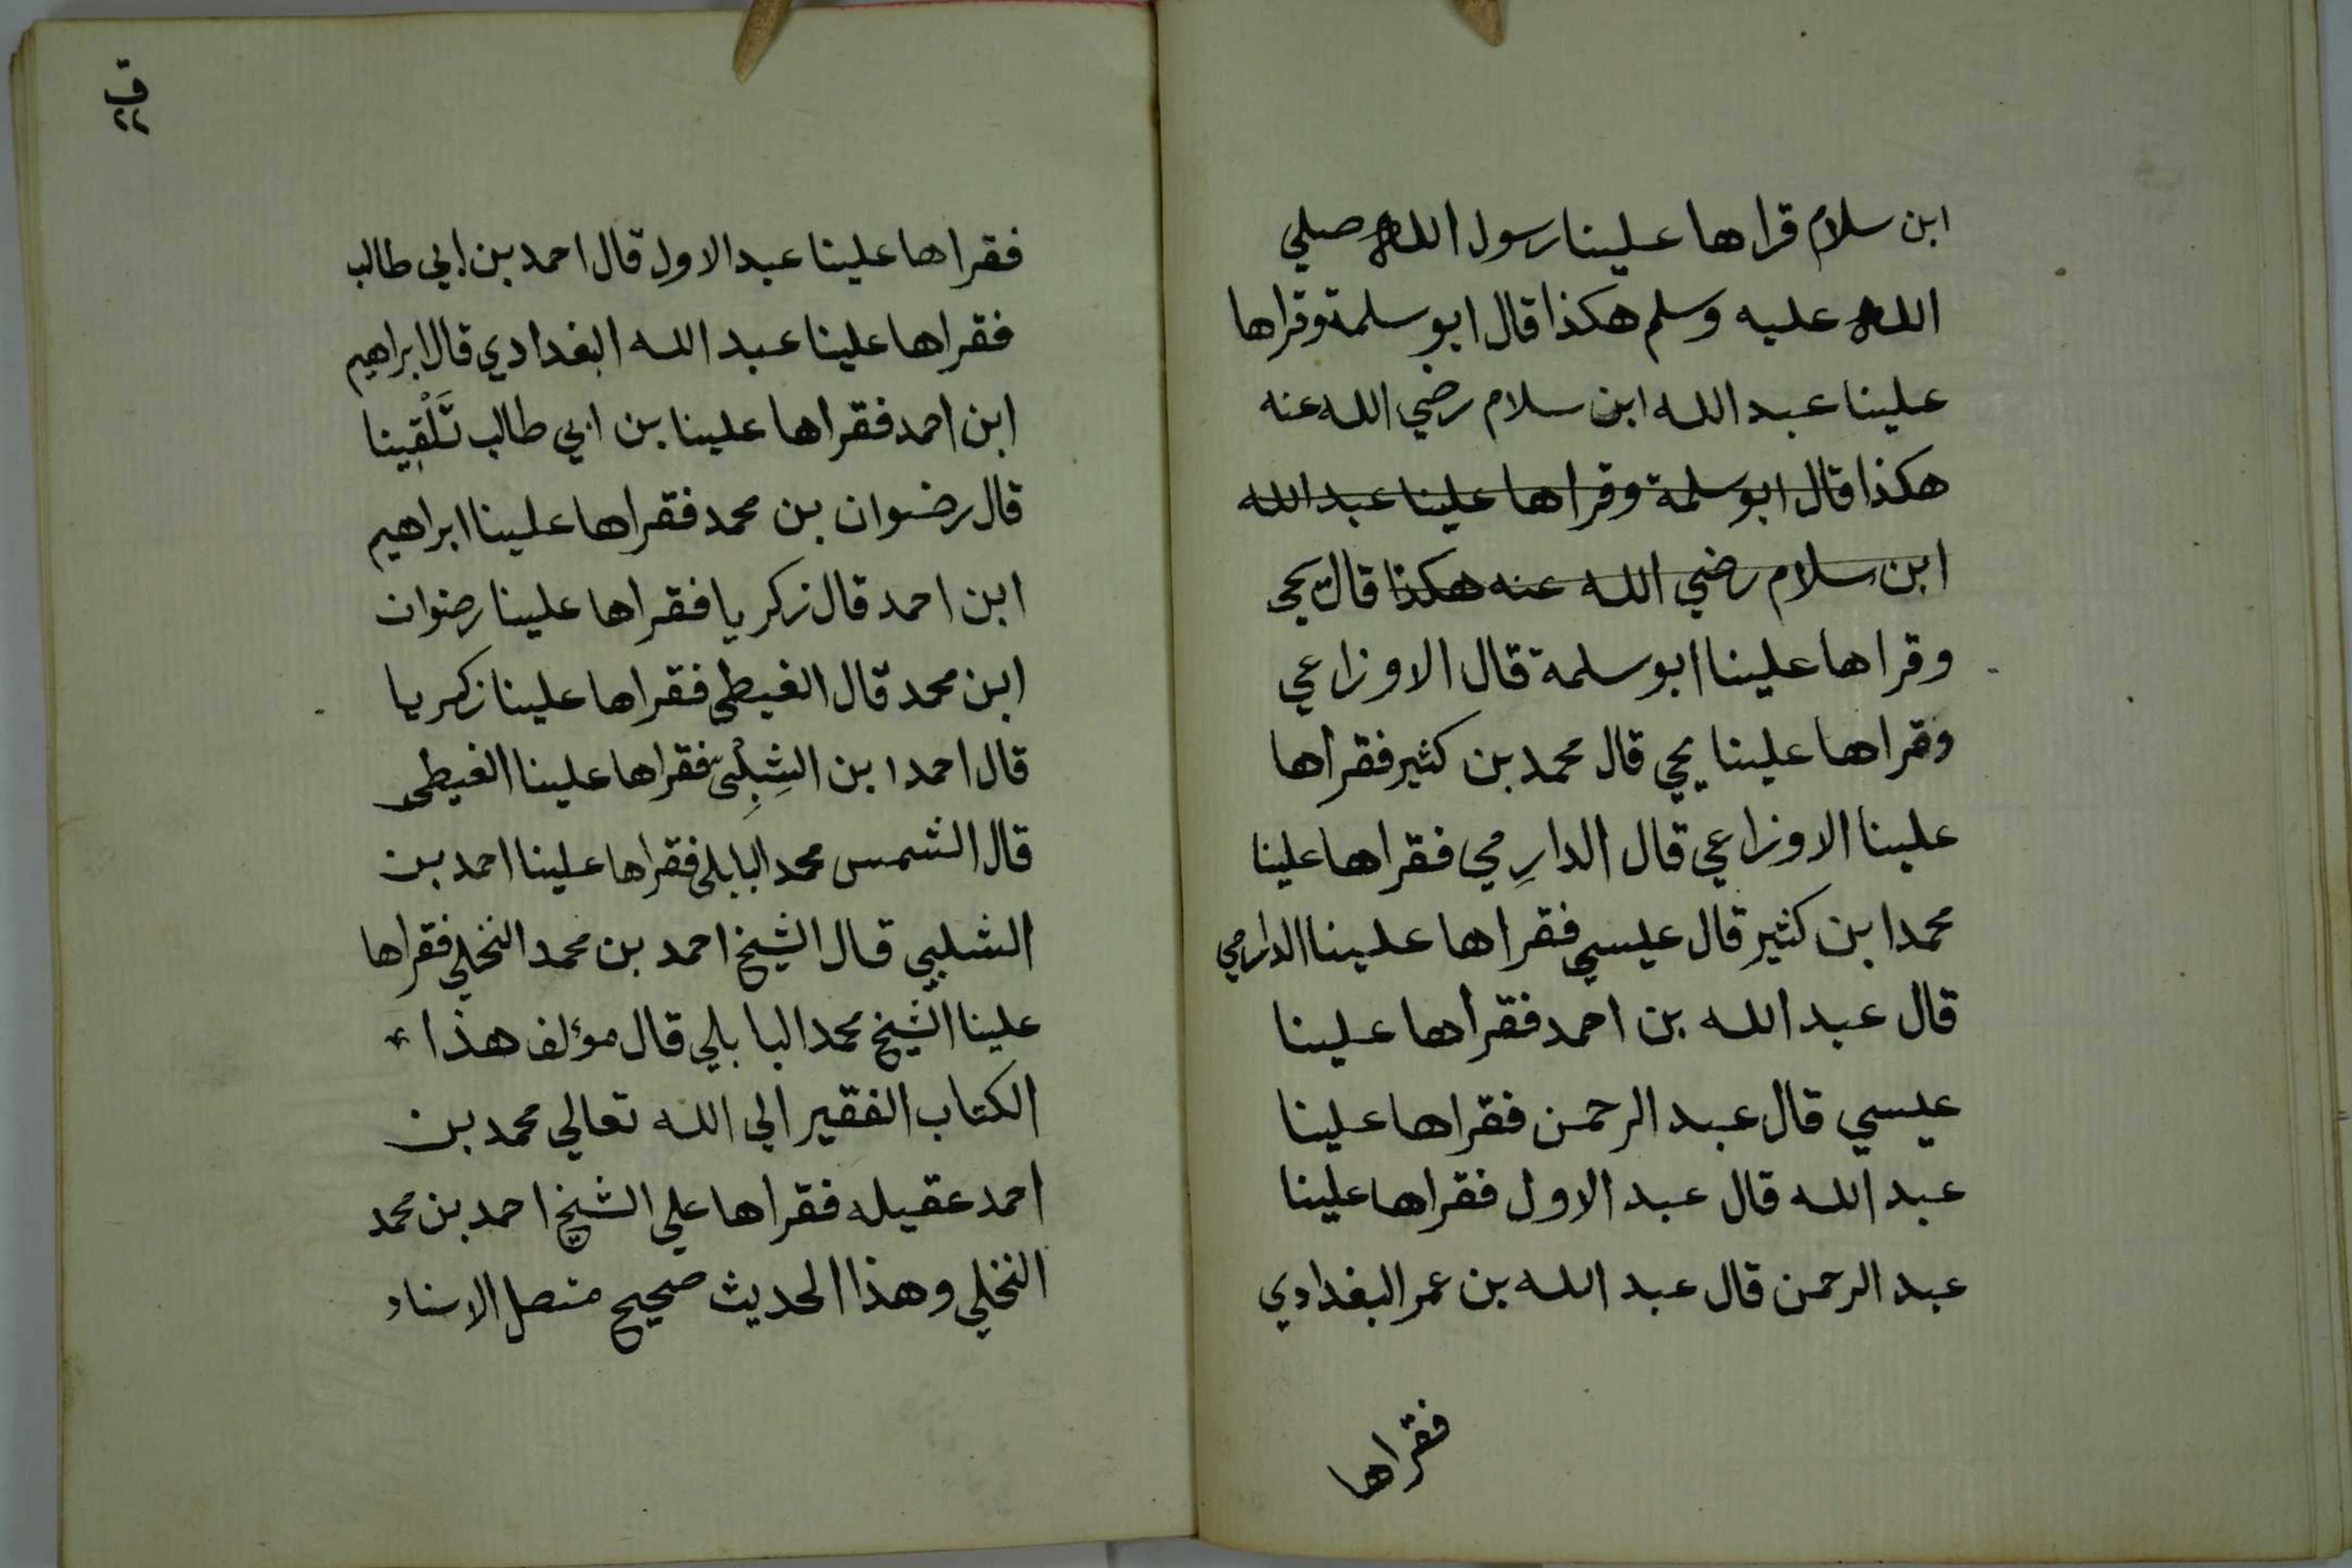 ابن سلام قراها علينا رسول الله صلي
الله عليه وسلم هكذا قال ابو سلمة وقراها
علينا عبد الله ابن سلام رضي الله عنه
هكذا قال ابو سلمة وقراها علينا عبد الله
ابن سلام رضي الله عنه هكذا قال يحي
وقراها علينا ابو سلمة قال الاوزاعي
وقراها علينا يحي قال محمد بن كثير فقراها
علينا الاوزاعي قال الدارِمي فقراها علينا
محمد ابن كثير قال عيسي فقراها علينا الدارمي
قال عبد الله بن احمد فقراها علينا
عيسي قال عبد الرحمن فقراها علينا
عبد الله قال عبد الاول فقراها علينا
عبد الرحمن قال عبد الله بن عمر البغدادي
فقراها
ق
٢٢
فقراها علينا عبد الاول قال احمد بن ابي طالب
فقراها علينا عبد الله البغدادي قال ابراهيم
ابن احمد فقراها علينا بن ابي طالب تَلْقِينا
قال رضوان بن محمد فقراها علينا ابراهيم
ابن احمد قال زكريا فقراها علينا رضوان
ابن محمد قال الغيطى فقراها علينا زكريا
قال احمد ابن الشِبِلْىّ فقراها علينا الغيطى
قال الشمس محمد البابلى فقراها علينا احمد بن
الشلبي قال الشيخ احمد بن محمد النخلي فقراها
علينا الشيخ محمد البابلي قال مؤلف هذا
الكتاب الفقير الي الله تعالي محمد بن
احمد عقيله فقراها علي الشيخ احمد بن محمد
النخلي وهذا الحديث صحيح متصل الاسناد